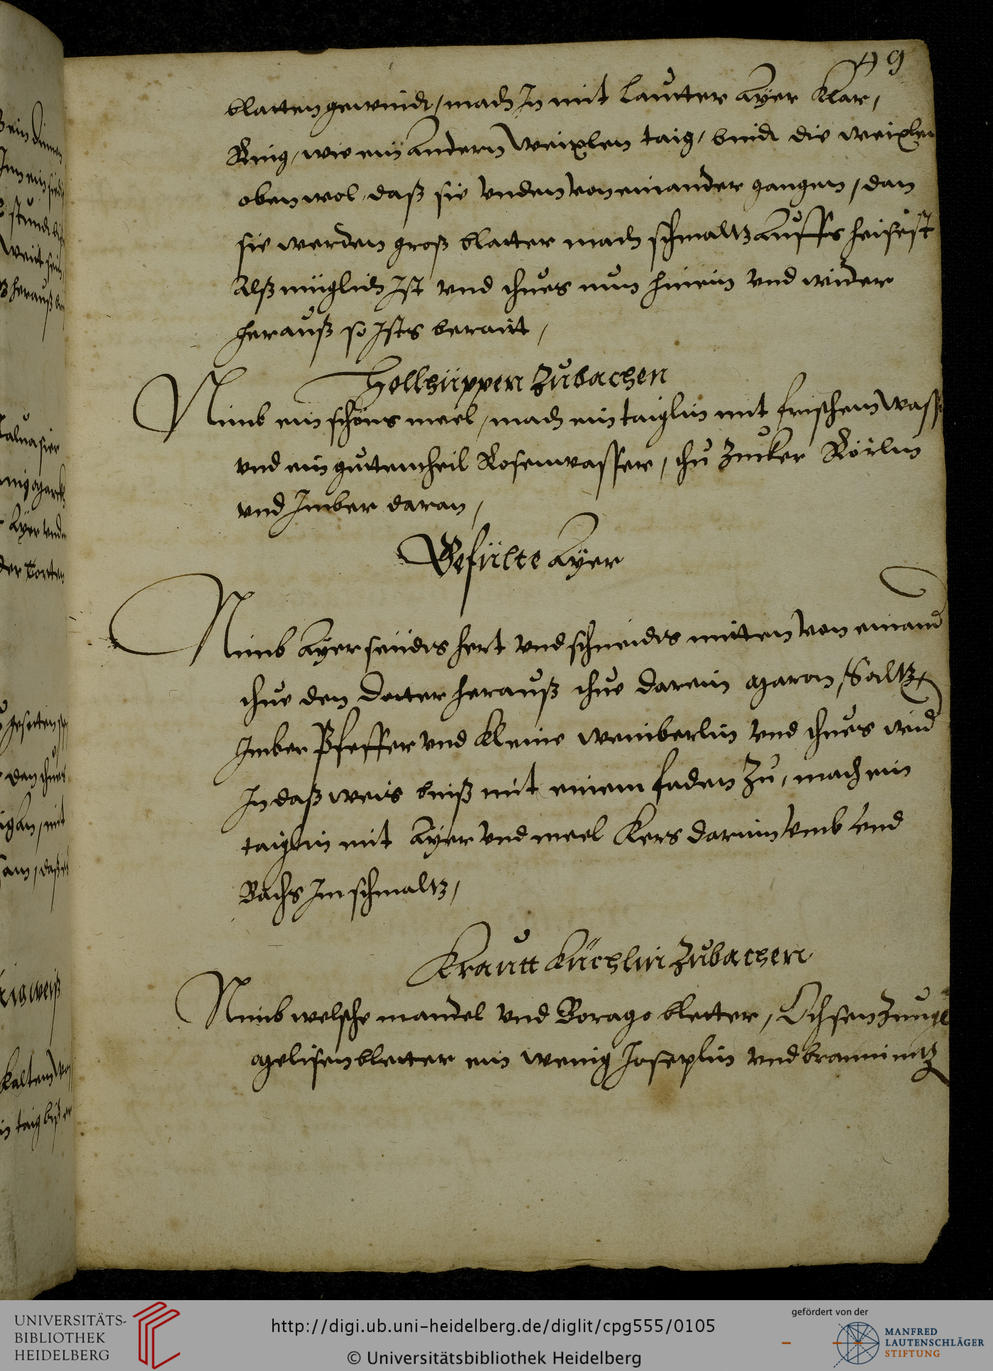 49
blatten gewindt, mach In mit lautter Ayer klar,
Ring, wie ein Andern weixlen taig, bind die weixlen
oben wol, daß sie unden von einander gangen, dan
sie werden groß blatter mach schmaltz Auffs heisest
Alß müglich Ist vnd thues nun hinein vnd wider
herauß so Ists berait,
Hollhüppen Zubachen
Nimb ein schöns meel, mach ein taiglin mit frischem wasser
vnd ein guttentheil Rosenwasser, thu Zucker Rörlin
vnd Imber daran,
Gefülte Ayer
Nimb Ayer seuds hert vnd schneids mitten von einand
thue den dotter herauß thue darein Saltz,
Imber Pfeffer vnd kleine weinberlin vnd thues wid
In daß weis binß mit einem faden Zu, mach ein
taiglin mit Ayer vnd meel kers darinn vmb vnd
Bachs Im schmaltz,
Krautt küchlin Zubachen
Nimb welsche mandel vnd Borago bletter, Ochsen Zungen
bletter ein wenig vnd
UNIVERSITÄTS-
BIBLIOTHEK
HEIDELBERG
http://digi.ub.uni-heidelberg.de/diglit/cpg555/0105
© Universitätsbibliothek Heidelberg
gefördert von der
MANFRED
LAUTENSCHLÄGER
STIFTUNG